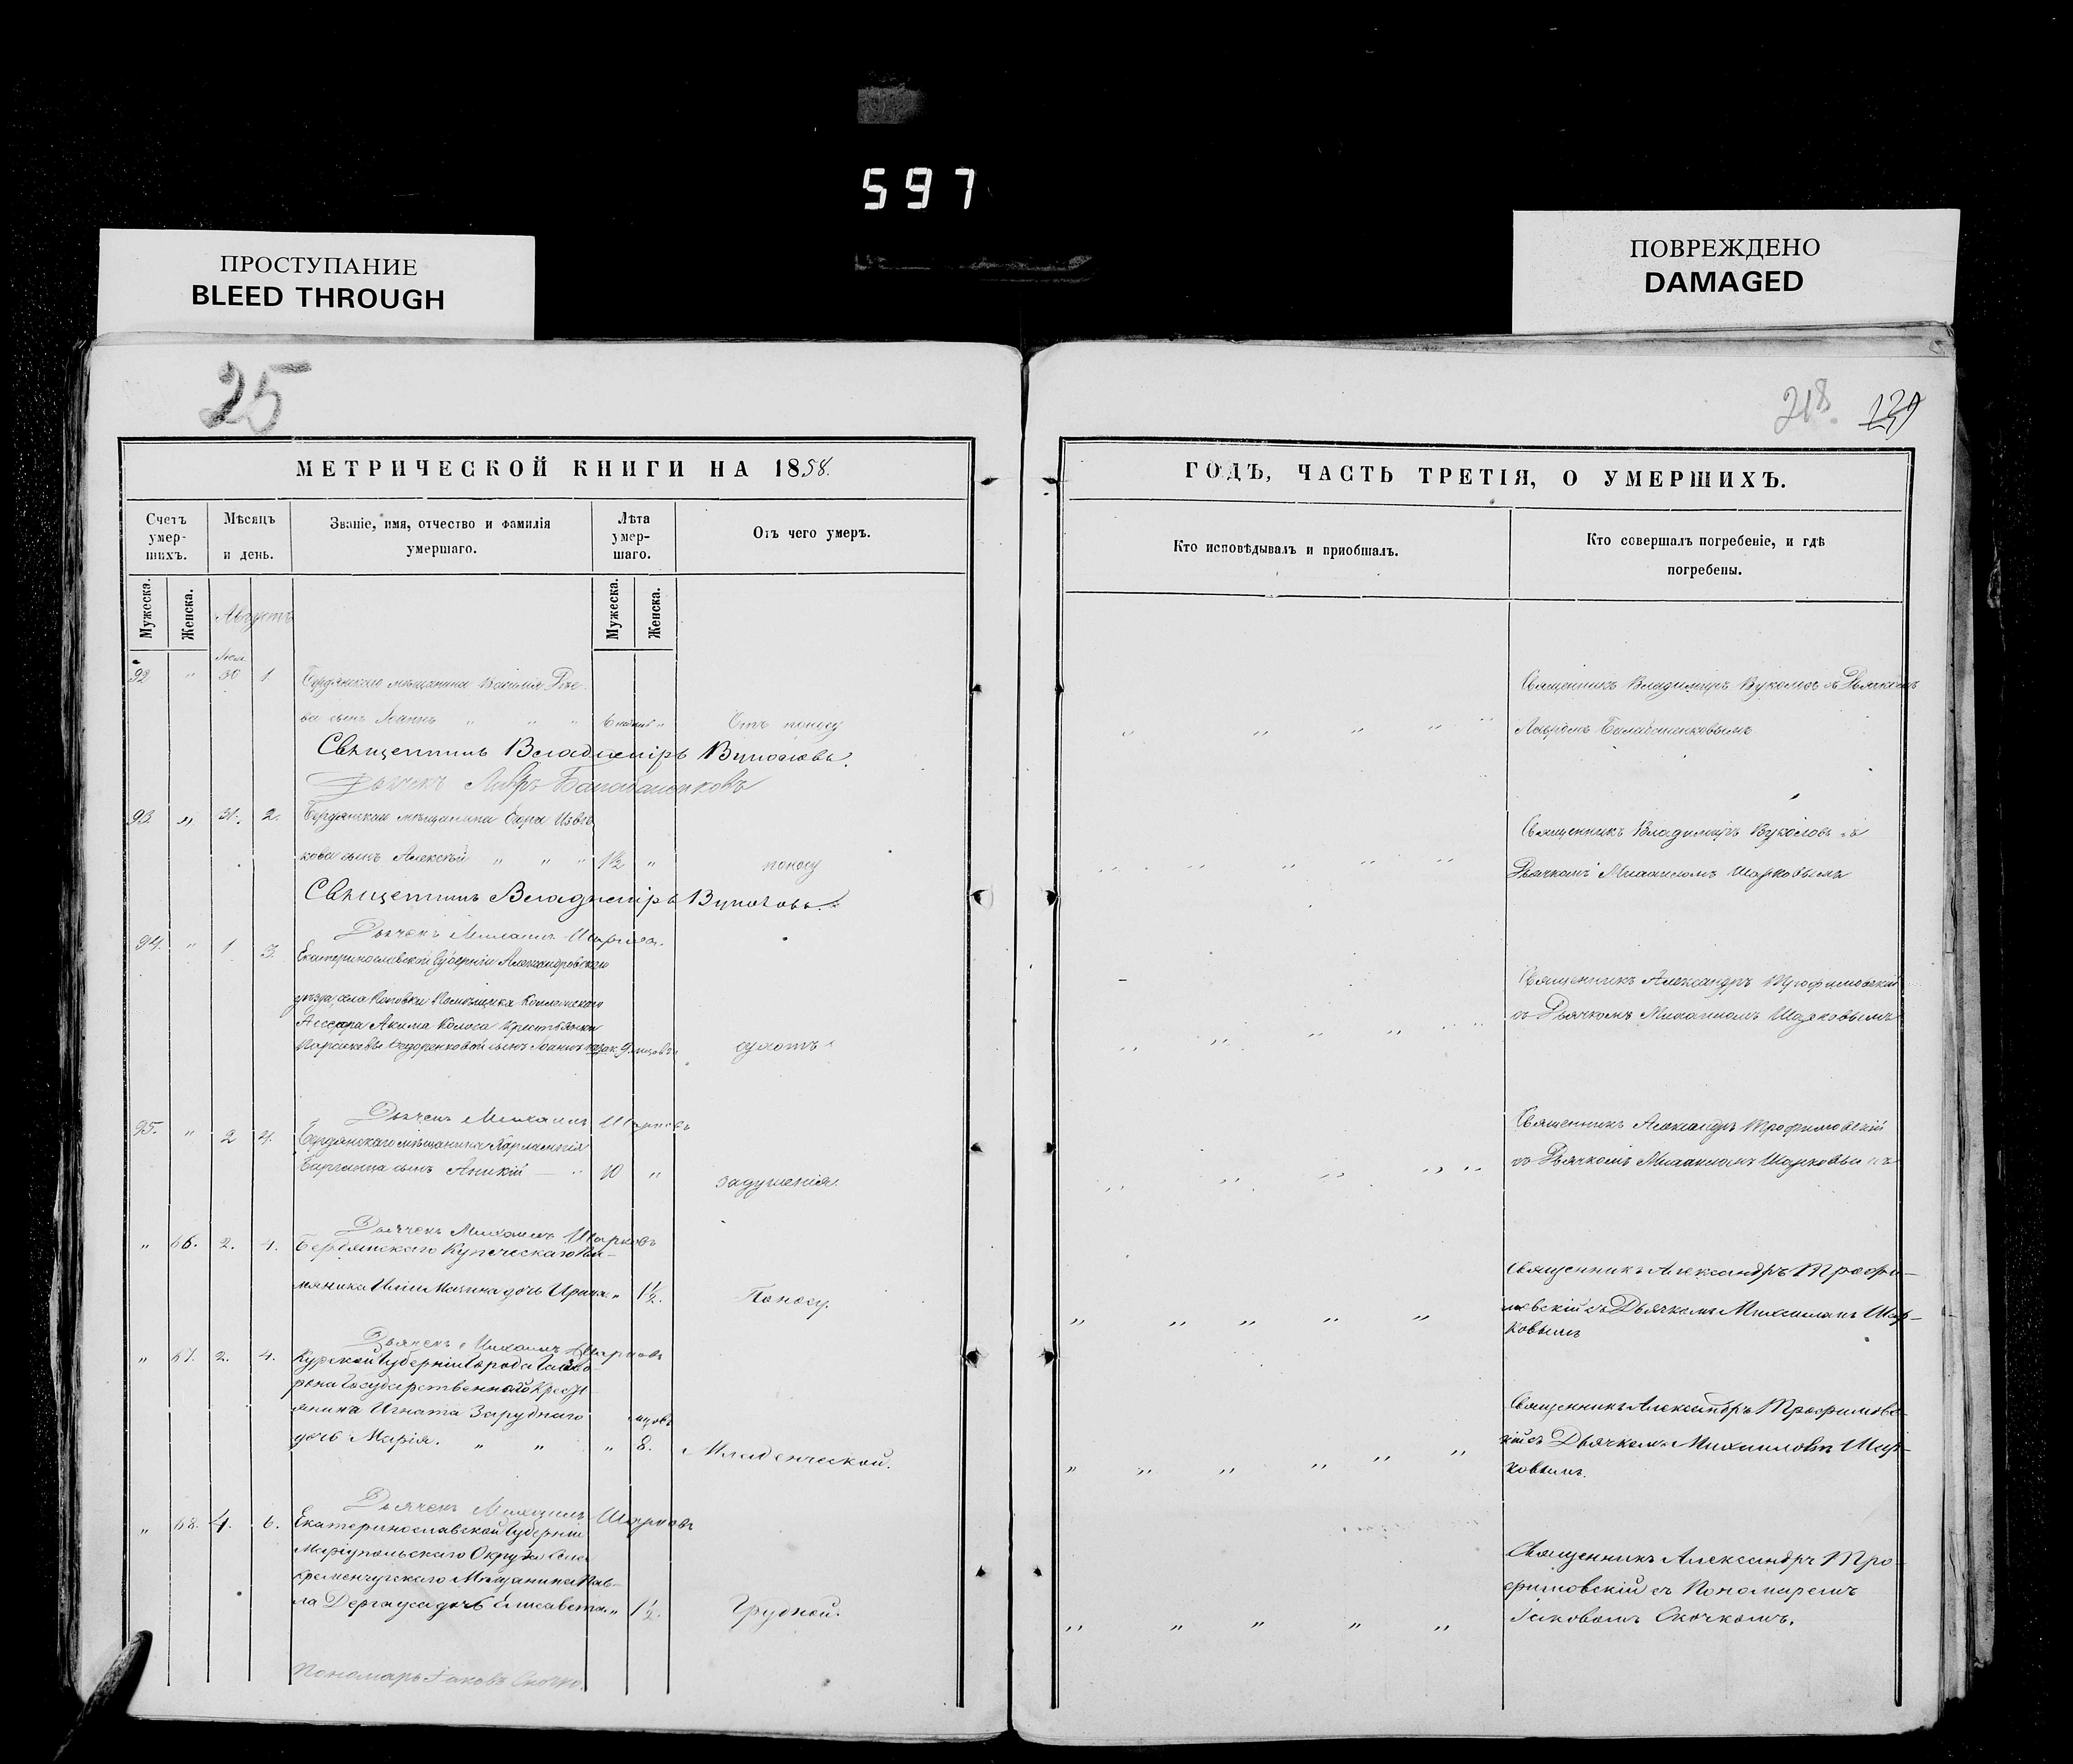 597
ПРОСТУПАНИЕ
BLEED THROUGH
ПОВРЕЖДЕНО
DAMAGED
25
218.
МЕТРИЧЕСКОЙ КНИГИ НА 1858.
Счетъ умер-шихъ.
Мѣсяцъ и день.
Званіе, имя, отчество и фамилія умершаго.
Лѣта умер-шаго.
Отъ чего умеръ.
Мужеска.
Женска.
Мужеска.
Женска.
Августъ
92 " 30 1 Бердянскаго мѣщанина Василія
ва сынъ Іоаннъ " " " 6 " Отъ поносу
Священникъ Владиміръ Вуколовъ.
Дьячекъ Лавръ Балабаненковъ
93. " 31. 2. Бердянскаго мѣщанина Егора
кова сынъ Алексѣй " " " 1½ " поносу
Священникъ Владиміръ Вуколовъ.
Дьячекъ Михаилъ
94. " 1 3. Екатеринославской Губерніи Александровскаго
уѣзда, села Помѣщика
Акима Колоса Крестьянки
сынъ Іоаннъ 9 сухотъ
Дьячекъ Михаилъ Шарковъ
95. " 2 4. Бердянскаго мѣщанина
сынъ Аникій " 10 " задушенія.
Дьячекъ Михаилъ Шарковъ
" 66. 2. 4. Бердянскаго Купеческаго Пле-
мяника Иліи дочь Ирина " 1½. Поносу.
Дьячекъ Михаилъ Шарковъ
" 67. 2. 4. Курской Губерніи Города Гайво-
рона Государственнаго Кресть
янина Игната Заруднаго мѣсяц
дочь Марія. " " " 8. Младенческой.
Дьячекъ Михаилъ Шарковъ
" 68. 4. 6. Екатеринославской Губерніи
Маріупольскаго Округа
Кременчугскаго Мѣщанина Пав-
ла Дергауса дочь Елисавета " 1½. Грудной.
Пономарь Іаковъ Скочко.
ГОДЪ, ЧАСТЬ ТРЕТІЯ, О УМЕРШИХЪ.
Кто исповѣдывалъ и пріобщалъ.
Кто совершалъ погребеніе, и гдѣ погребены.
Священникъ Владиміръ Вуколовъ съ Дьячкомъ
Лавромъ Балабаненковымъ
Священникъ Владиміръ Вуколовъ съ
Дьячкомъ Михаиломъ Шарковымъ
Священникъ Александръ Трофимовскій
съ Дьячкомъ Михаиломъ Шарковымъ
Священникъ Александръ Трофимовскій
съ Дьячкомъ Михаиломъ Шарковымъ
Священникъ Александръ Трофи-
мовскій съ Дьячкомъ Михаиломъ Шар-
ковымъ
Священникъ Александръ Трофимовс-
кій съ Дьячкомъ Михаиломъ Шар-
ковымъ.
Священникъ Александръ Тро-
фимовскій съ Пономаремъ
Іаковомъ Скочкомъ.